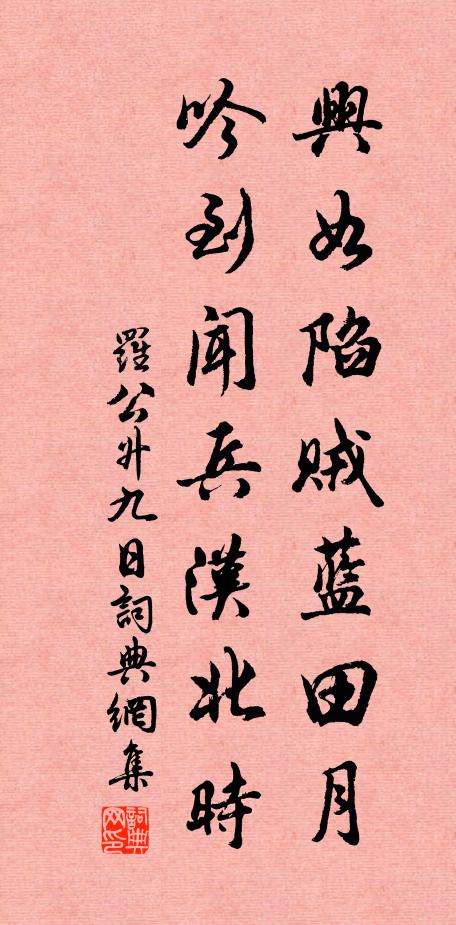 興如陷賊藍田月
吟到聞兵漢北時
羅公升九日詞典網集
詞典网印